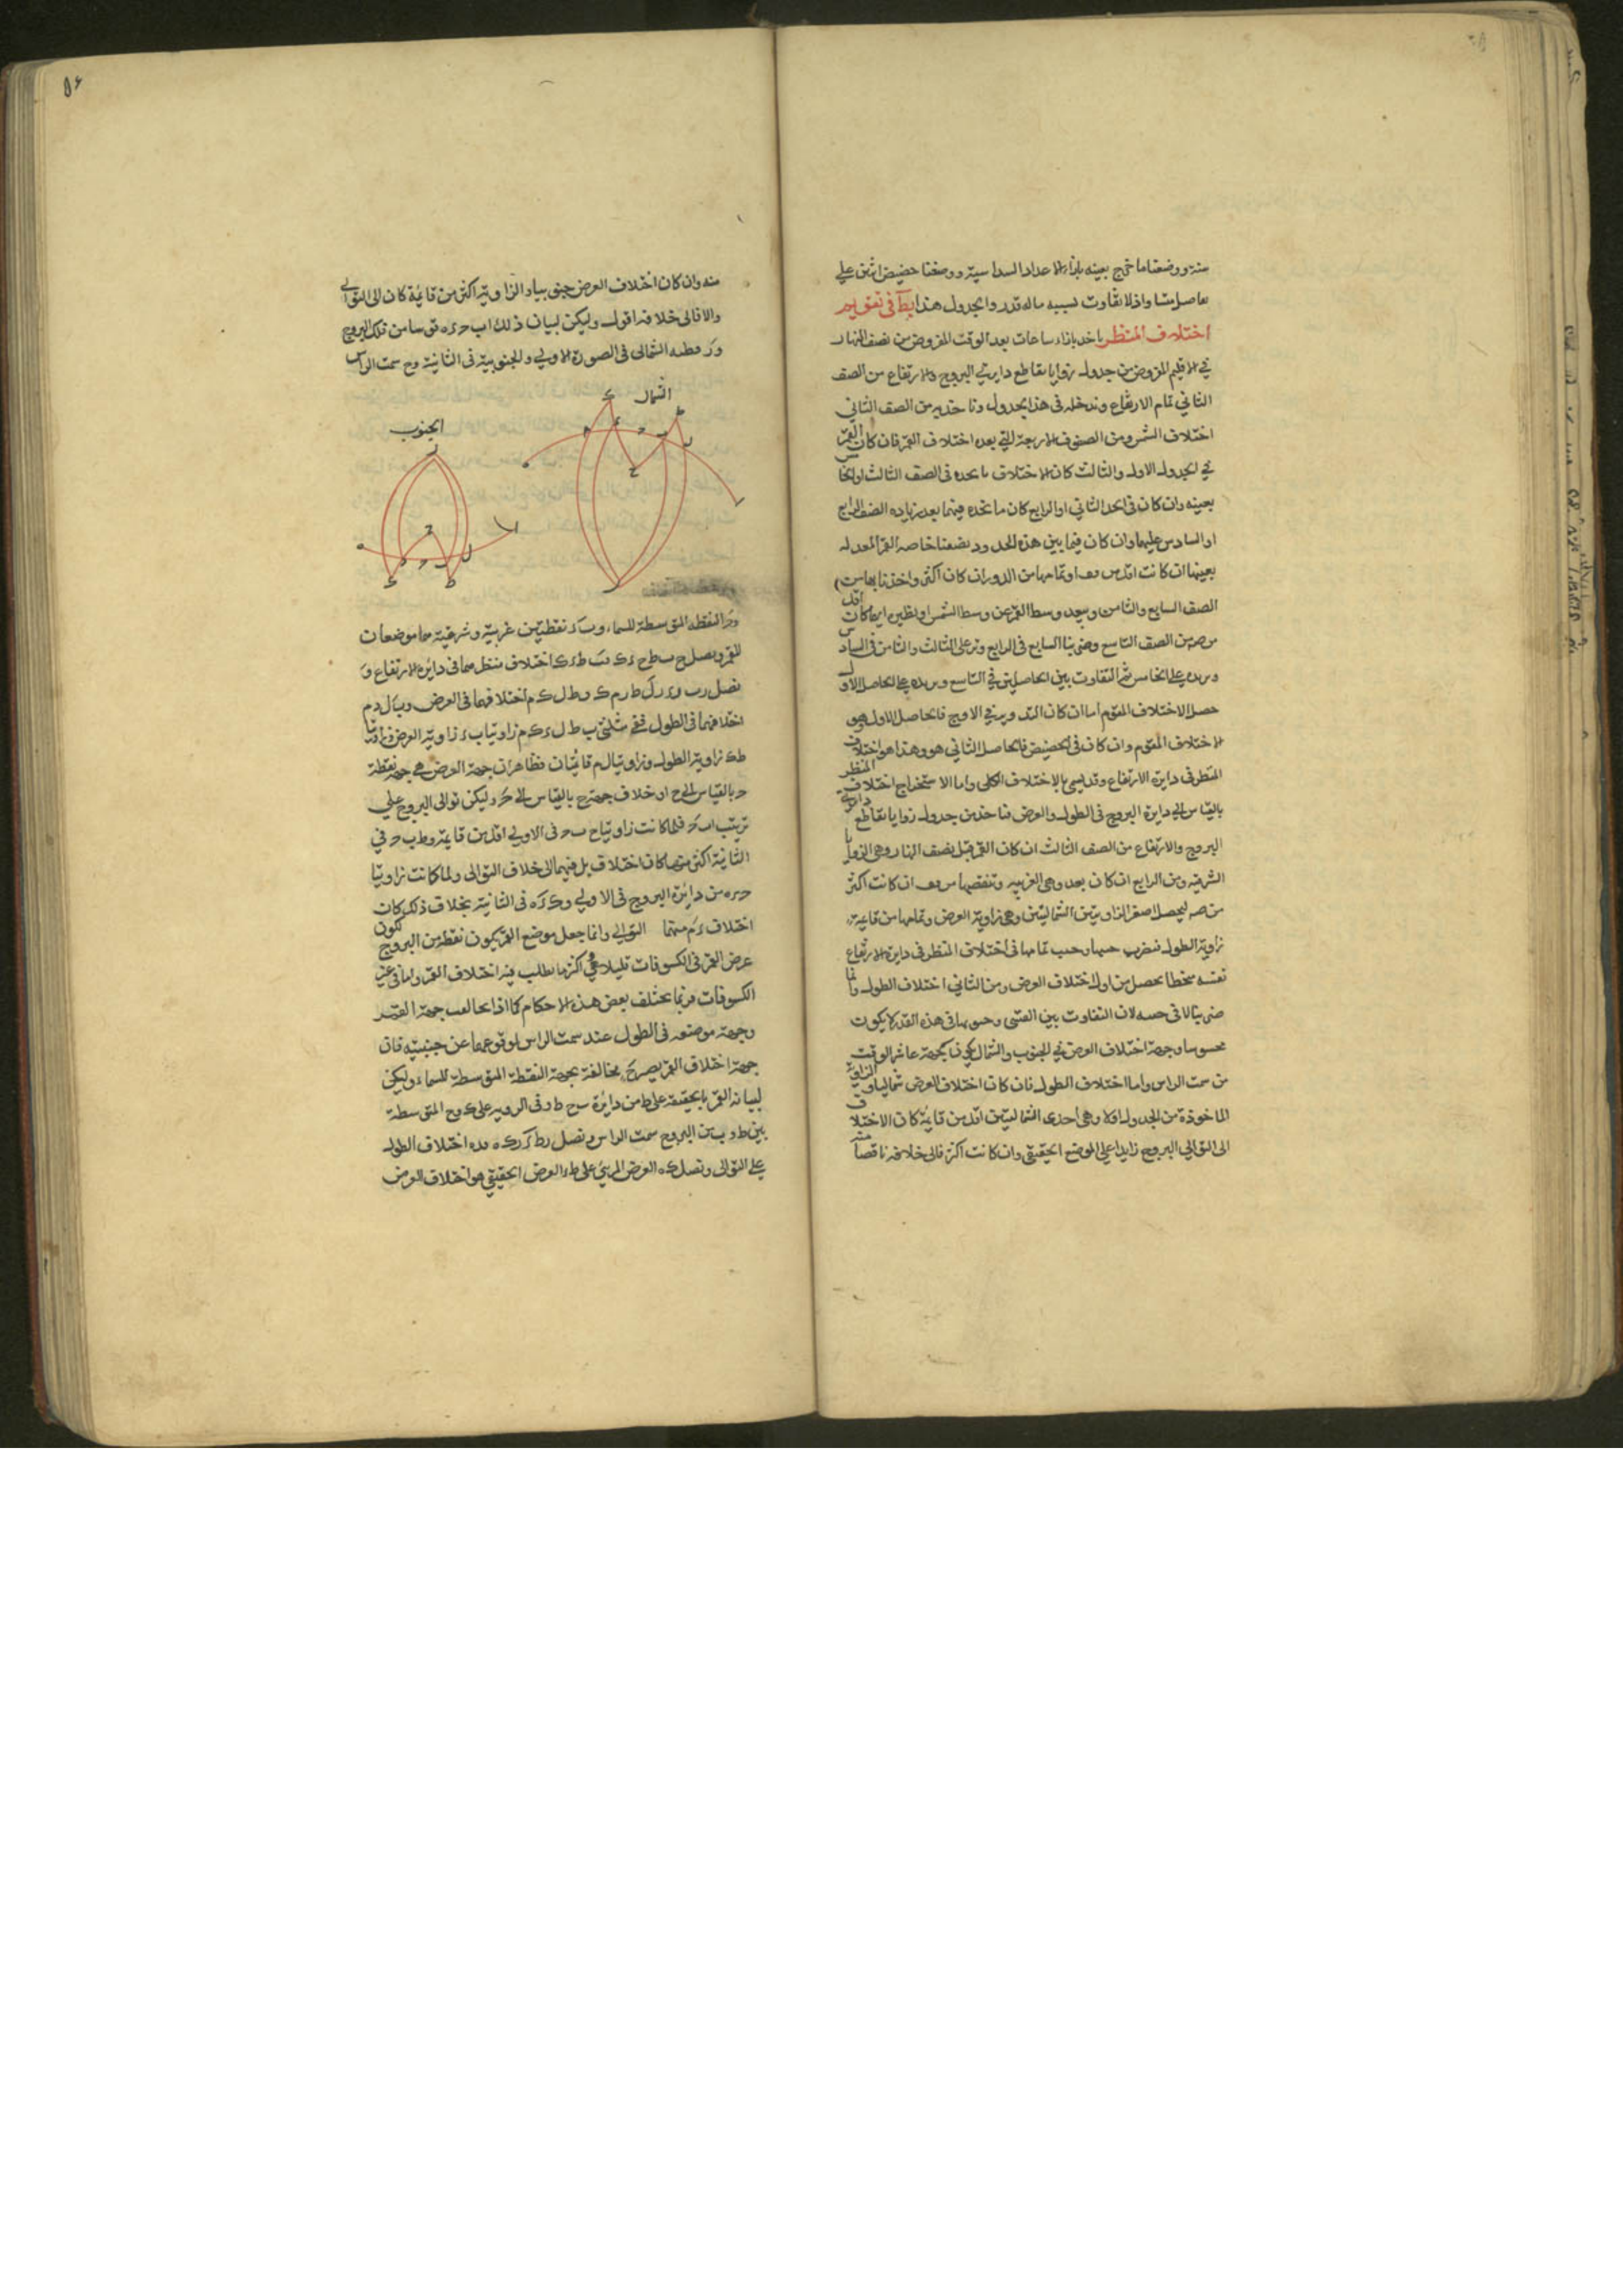 منه ووضعنا ما خرج بعينه بازاء الاعداد السداسية ووضعنا حضيض اثنين على
حاصل منا واذ لا تفاوت لسببه ماله قدر والجدول هذا يط في تقويم
اختلاف المنظر ناخذ بازاء ساعات بعد الوقت المفروض من نصف النهار
في الاقليم المفروض من جدول زوايا تقاطع دايرتي البروج والارتفاع من الصف
الثاني تمام الارتفاع وندخله في هذا الجدول وناخذ من الصف الثاني
اختلاف الشمس ومن الصفوف الاربعة التي بعده اختلاف القمر فان كان القمر
في الجدول الاول والثالث كان الاختلاف ما نجده في الصف الثالث او الخامس
بعينه وان كان في الحد الثاني او الرابع كان ما نجده فيهما بعد زياده الصف الرابع
او السادس عليهما وان كان فيما بين هذه الحدود نصفنا خاصة القمر المعدله
بعينها ان كانت اقل من او تمامها من الدور ان كان اكثر واخذنا بها من
الصف السابع والثامن وببعد وسط القمر عن وسط الشمس او نظيره ايهما كان اقل
من الصف التاسع وضربنا السابع في الرابع ونزيد على الثالث والثامن في السادس
ونزيده على الخامس ثم التفاوت بين الحاصلين في التاسع ونزيده على الحاصل الاول
حصل الاختلاف المقوم اما ان كان التدوير في الاوج فالحاصل الاول هو
الاختلاف المقوم وان كان في الحضيض فالحاصل الثاني هو وهذا هو اختلاف المنظر
المنظر في دايرة الارتفاع وقد يسمى بالاختلاف الكلي واما الاستخراج اختلاف
بالقياس الى دايرة البروج في الطول والعرض فناخذ من جدول زوايا تقاطع دايرتي
البروج والارتفاع من الصف الثالث ان كان القمر قبل نصف النهار وهي الزوايا
الشرقية ومن الرابع ان كان بعده وهي الغربيه وننقصها من ان كانت اكثر
من ص ليحصل اصغر الزاويتين الشماليتين وهي زاوية العرض وتمامها من قايمة
زاوية الطول فنضرب جيبها وجيب تمامها في اختلاف المنظر في دايرة الارتفاع
نفسه منحطا يحصل من اول اختلاف العرض ومن الثاني اختلاف الطول وانما
ضربنا لا في جيبه لان التفاوت بين القسي وجيوبها في هذه القدر لا يكون
محسوسا وجهة اختلاف العرض في الجنوب والشمال يكون بجهة عاشر الوقت
من سمت الراس واما اختلاف الطول فان كان اختلاف العرض شماليا والزاوية
الماخوذة من الجدول اولا وهي احدى الشماليتين اقل من قايمة كان الاختلاف
الى التوالي البروج زايدا على الموضع الحقيقي وان كانت اكثر فالى خلافه ناقصا منه
٥٦
منه وان كان اختلاف العرض جنوبيا والزاوية اكثر من قايمة كان الى التوالي
والا فالى خلافه اقول وليكن لبيان ذلك ا ب ح ء ه قوسا من فلك البروج
و ر قطبه الشمالي في الصورة الاولى والجنوبية في الثانية و ح سمت الراس
الشمال
الجنوب
و ح النقطة المتوسطة للسماء و ب ء نقطتين غربية وشرقية هما موضعان
للقمر ونصل ح ب ط ح ء ك ف ب ط ء ك اختلاف منظرهما في دايرة الارتفاع و
نصل ر ب ر ء ر ل ط ر م ك و ط ل ك م اختلافهما في العرض و ب ل ء م
اختلافهما في الطول ففي مثلثي ب ط ل ء ك م زاويتا ب ء زاوية العرض وزاويتا
ط ك زاوية الطول وزاويتا ل م قائمتان فظاهر ان جهة العرض هي جهة نقطة
ح بالقياس الى ح او خلاف جهة ح بالقياس الى ح وليكن توالي البروج على
ترتيب ا ب ح فلما كانت زاويتا ح ب ح في الاولى اقل من قايمة و ط ب ح في
الثانية اكثر منها كان اختلاف ب ل فيهما الى خلاف التوالي ولما كانت زاويتا
ح ء ه من دايرة البروج في الاولى و ك ء ه في الثانية بخلاف ذلك كان
اختلاف ء م منهما التوالي وانما جعل موضع القمر يكون نقطة من البروج لكون
عرض القمر في الكسوفات قليلا وهي اكثر ما يطلب فيه اختلاف القمر واما في غير
الكسوفات فربما يختلف بعض هذه الاحكام كما اذا تخالفت جهة القمر
وجهة موضعه في الطول عند سمت الراس لوقوعهما عن جنبيه فان
جهة اختلاف القمر يصير مخالفة بجهة النقطة المتوسطة للسماء وليكن
لبيانه القمر بالحقيقة على ط من دايرة ح ط وفي الروية على ك و ح المتوسطة
بين ط و ب من البروج سمت الراس ونصل ر ط ء ر ك ه ف ء ه اختلاف الطول
على التوالي ونصل ك ه العرض المرئي على ط ء العرض الحقيقي هو اختلاف العرض